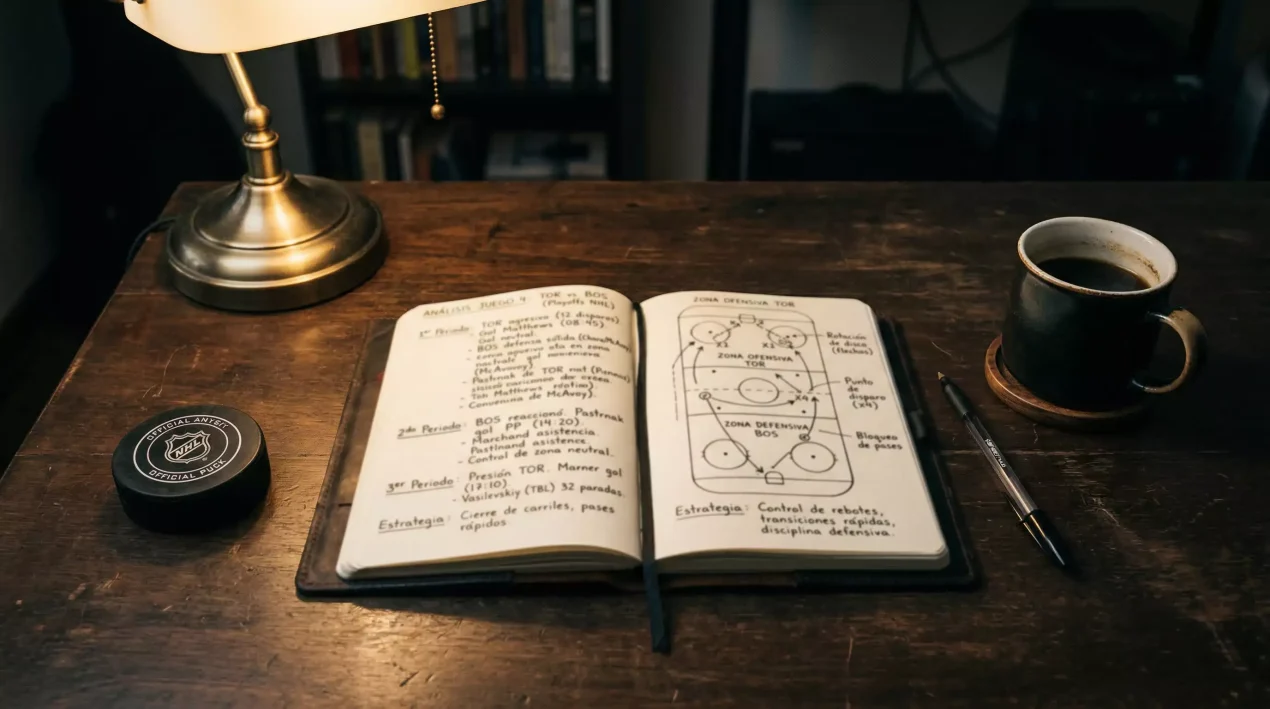 OFFICIAL ANTEY
NHL
OFFICIAL PUCK
ANÁLISIS JUEGO 4: TOR vs BOS
(Playoffs NHL)
1er Periodo: TOR agresiva (12 disparos)
- Gol Matthews (08:45)
Gol neutral.
- BOS defensa sólida
en zona
gol
(McAvoy)
- Pastrnak de TOR
- Matthews
- de McAvoy).
2do Periodo: BOS reaccionó. Pastrnak
gol PP (14:20).
- Marchand asistencia.
Pastinand asistence.
- Control de zona neutral.
3er Periodo: Presión TOR. Marner gol
(17:10).
- Vasilevskiy (TBL) 32 paradas.
Estrategia: Cierre de carriles, pases
rápidos
ZONA OFENSIVA TOR
X1
ZONA OFENSIVA
TOR
X4
ZONA DEFENSIVA
BOS
Rotación
de disco
(flechas)
Punto
de
disparo
(x4)
Bloqueo
de pases
Estrategia: Control de rebotes,
transiciones rápidas,
disciplina defensiva.